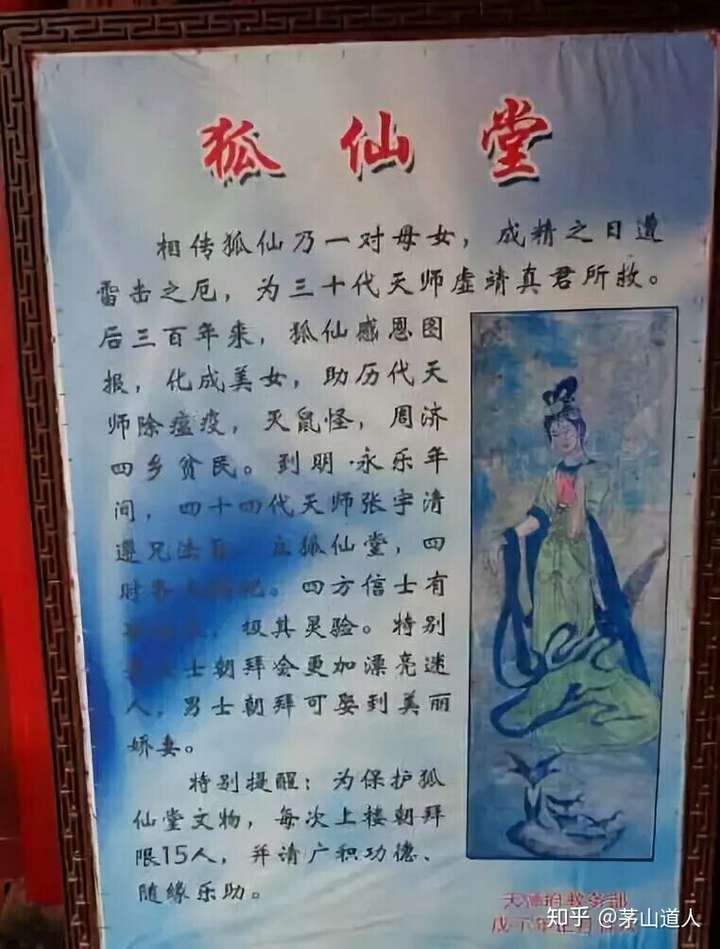 狐仙堂
相传狐仙乃一对母女，成精之日遭
雷击之厄，为三十代天师虚靖真君所救。
后三百年来，狐仙感恩图
报，化成美女，助历代天
师除瘟疫，灭鼠怪，周济
四乡贫民。到明·永乐年
间，四十四代天师张宇清
遵兄法旨 立狐仙堂，四
时 。四方信士有
，极其灵验。特别
士朝拜会更加漂亮迷
人，男士朝拜可娶到美丽
娇妻。
特别提醒：为保护狐
仙堂文物，每次上楼朝拜
限15人，并请广积功德、
随缘乐助。
天师府教务部
戊子年正月
知乎 @茅山道人